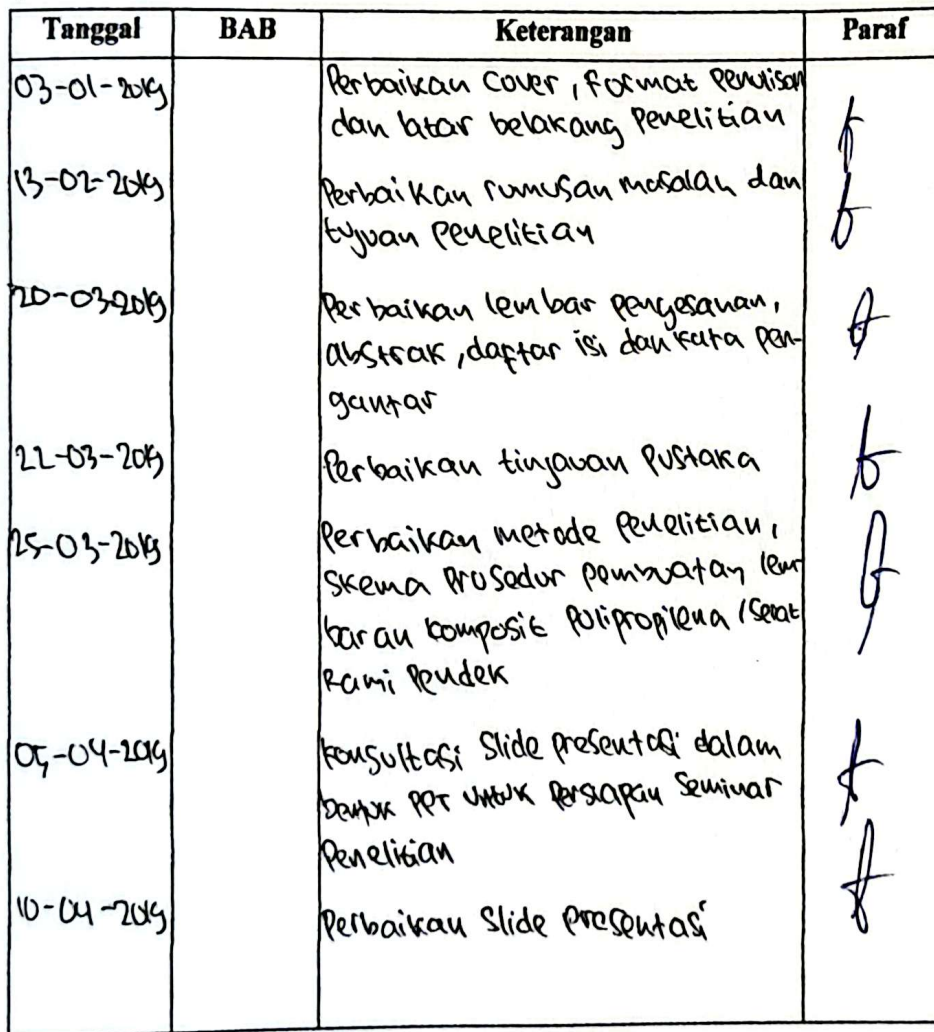 Tanggal BAB Keterangan Paraf
03-01-2019 Perbaikan Cover, format Penulisan
dan latar belakang Penelitian
13-02-2019 Perbaikan rumusan masalah dan
tujuan Penelitian
20-03-2019 Perbaikan lembar pengesahan,
abstrak, daftar isi dan kata Pen-
gantar
22-03-2019 Perbaikan tinjauan Pustaka
25-03-2019 Perbaikan metode Penelitian,
Skema Prosedur pembuatan lem
baran komposit Polipropilena / Serat
Rami Pendek
05-04-2019 Konsultasi Slide presentasi dalam
bentuk PPT untuk Persiapan Seminar
Penelitian
10-04-2019 Perbaikan Slide Presentasi